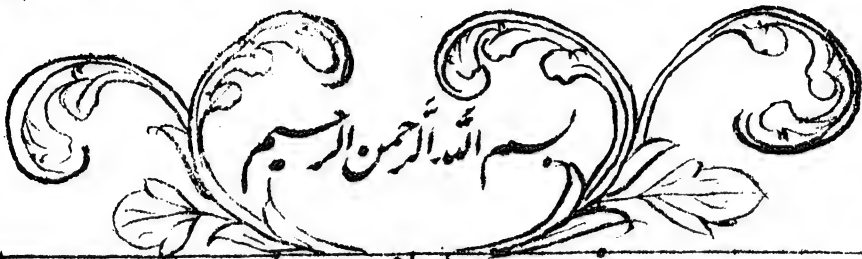 بسم اللہ الرحمن الرحیم